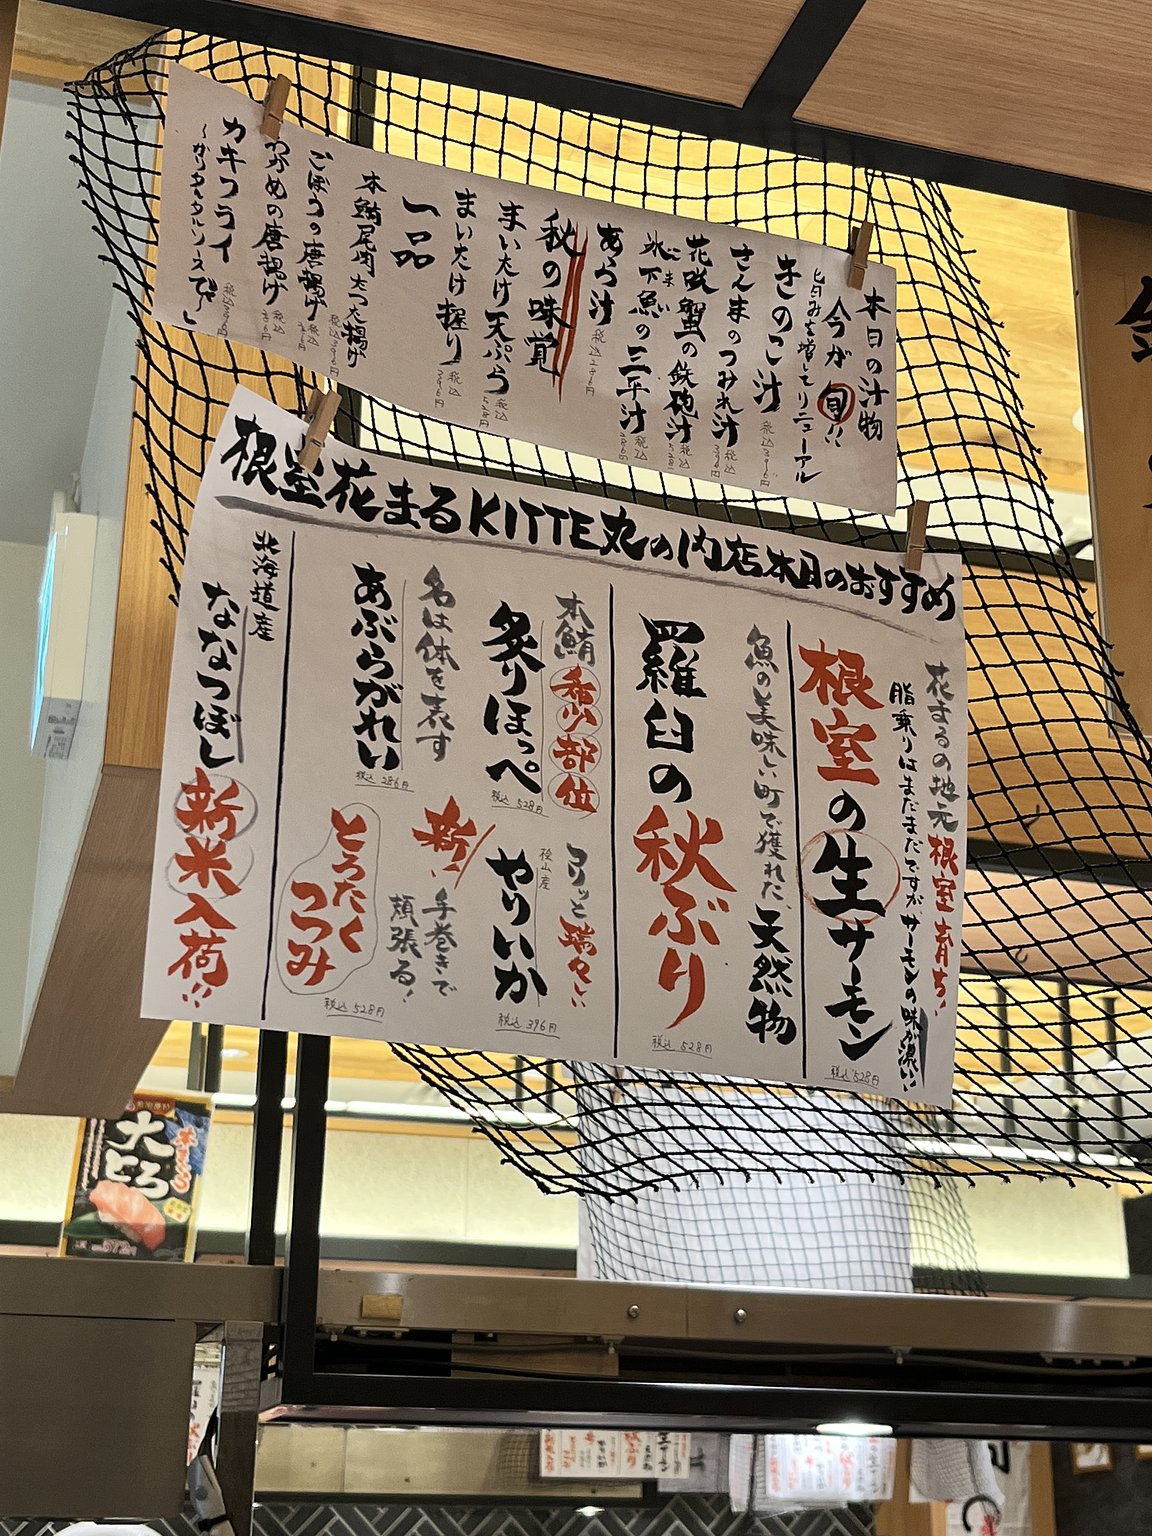 本日の汁物
今が旬!!
旨みを増してリニューアル
きのこ汁 税込396円
さんまのつみれ汁 税込396円
花咲蟹の鉄砲汁 税込
氷下魚の三平汁 税込286円
こまい
あら汁 税込286円
秋の味覚
まいたけ天ぷら 税込528円
まいたけ握り 税込396円
一品
本鮪尾肉たつた揚げ 税込396円
ごぼうの唐揚げ 税込
わかめの唐揚げ 税込
カキフライ 税込396円
〜ガリタルタルソースで〜
根室花まるKITTE丸の内店本日のおすすめ
花まるの地元根室育ち!
脂乗りはまだまだですがサーモンの味が濃い!!
根室の生サーモン
税込528円
魚の美味しい町で獲れた、天然物
羅臼の秋ぶり
税込528円
本鮪希少部位
炙りほっぺ
税込528円
コリッと瑞々しい
桧山産
やりいか
税込396円
名は体を表す
あぶらがれい
税込286円
新!
手巻きで
頬張る!
とろたく
つつみ
税込528円
北海道産
ななつぼし
新米入荷!!
本まぐろ
大とろ